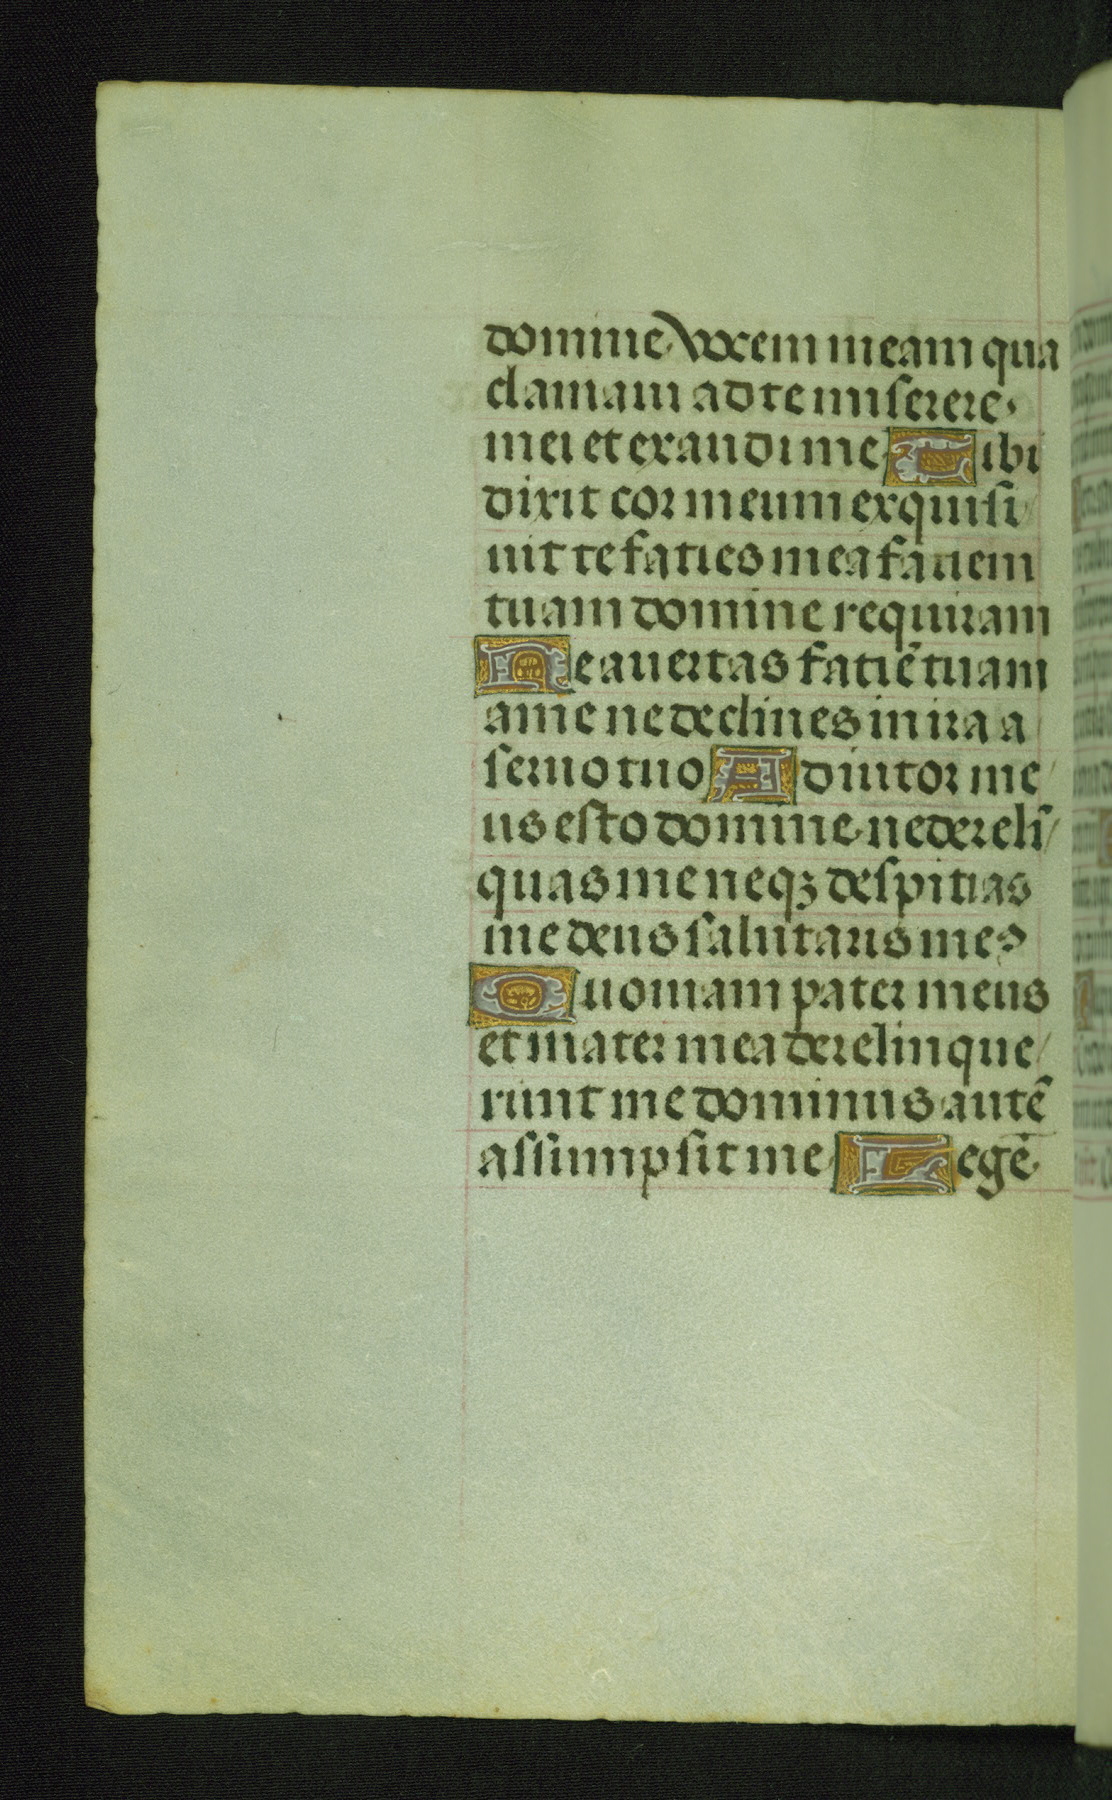 domine vocem meam qua
clamaui ad te miserere
mei et exaudi me Tibi
dixit cor meum exquisi
uit te faties mea fatiem
tuam domine requiram
Ne auertas fatiē tuam
a me ne declines in ira a
seruo tuo Adiutor me
us esto domine ne dereli
quas me neqꝫ despitias
me deus salutaris me9
Quoniam pater meus
et mater mea derelinque
runt me dominus autē
assumpsit me Legē